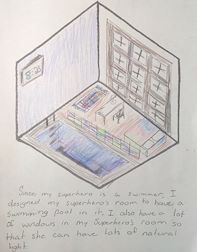 Since my superhero is a swimmer, I
designed my superhero's room to have a
swimming pool in it. I also have a lot
of windows in my superhero's room so
that she can have lots of natural
light.